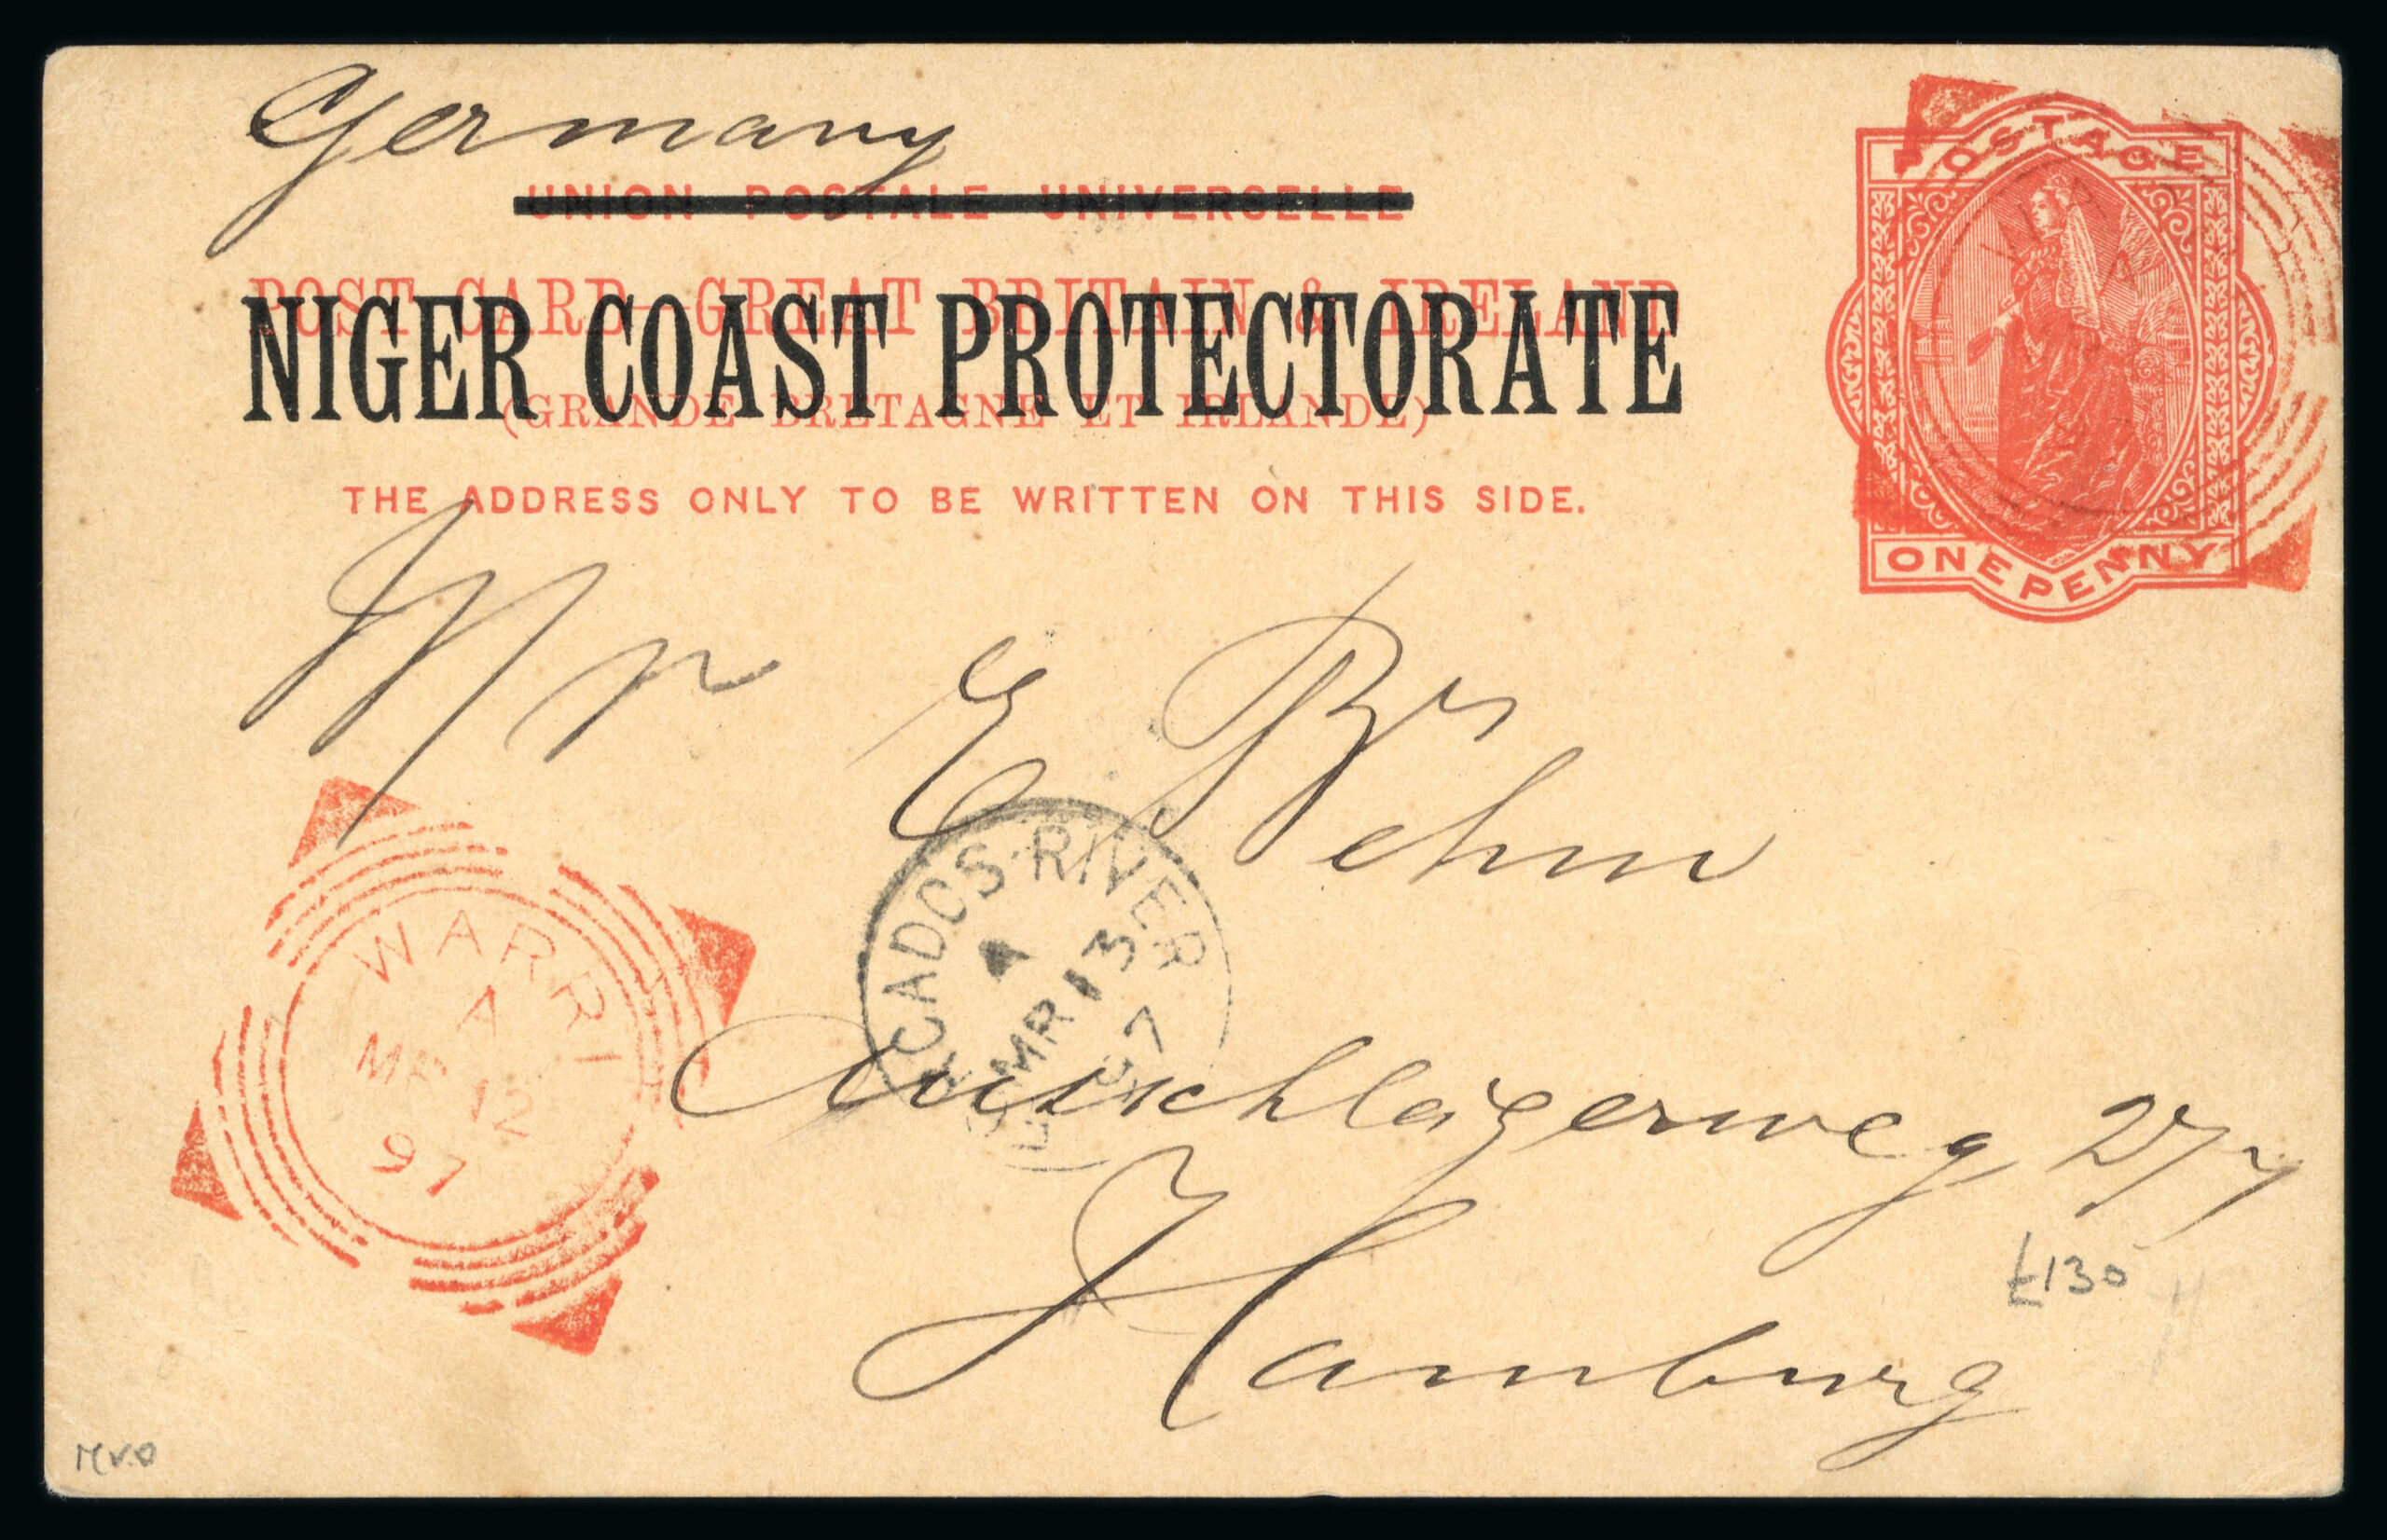 Germany
UNION POSTALE UNIVERSELLE
POST CARD—GREAT BRITAIN & IRELAND
NIGER COAST PROTECTORATE
(GRANDE BRETAGNE ET IRLANDE)
THE ADDRESS ONLY TO BE WRITTEN ON THIS SIDE.
POSTAGE
ONE PENNY
Mr E Behm
WARRI
A
MR 12
97
CADOS RIVER
A
MR 13
97
Ausschlägerweg 27
Hamburg
£130